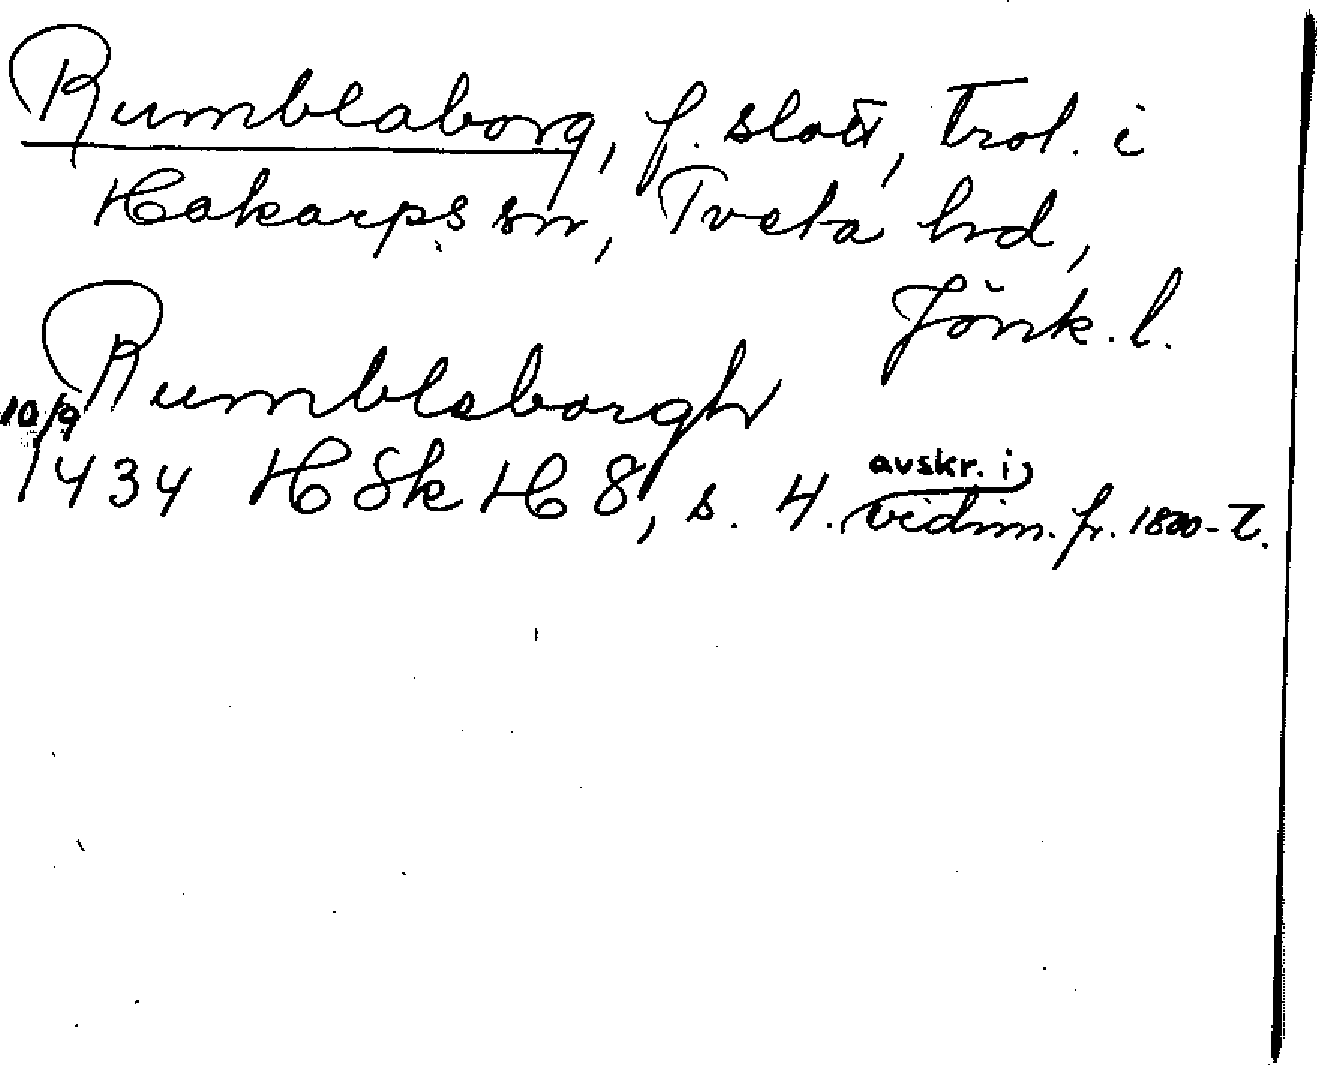 Rumblaborg, f. slott, trol. i
Hakarps sn, Tveta hd,
Jönk. l.
Rumblaborgh
10/9
1434 HSk H 8, s. 4. avskr. i vidim. fr. 1800-t.